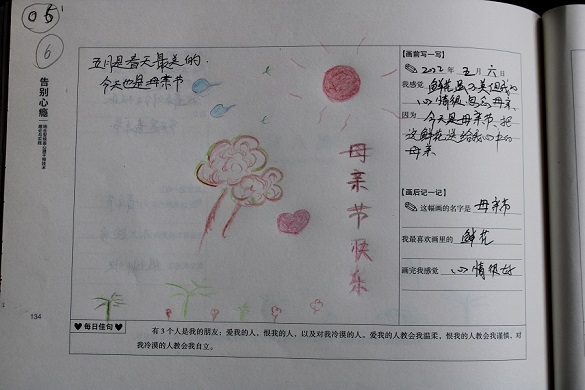 05
6
告别心瘾
134
五月是春天最美的.
今天也是母亲节
母亲节快乐
【画前写一写】
2022 年 五 月 六 日
我感觉
心情很
因为 今天是母亲节.把
这鲜花送给我心中的
母亲
【画后记一记】
这幅画的名字是 母亲节
我最喜欢画里的 鲜花
画完我感觉 心情很好
每日佳句
有3个人是我的朋友：爱我的人、恨我的人、以及对我冷漠的人。爱我的人教会我温柔，恨我的人教会我谨慎，对
我冷漠的人教会我自立。